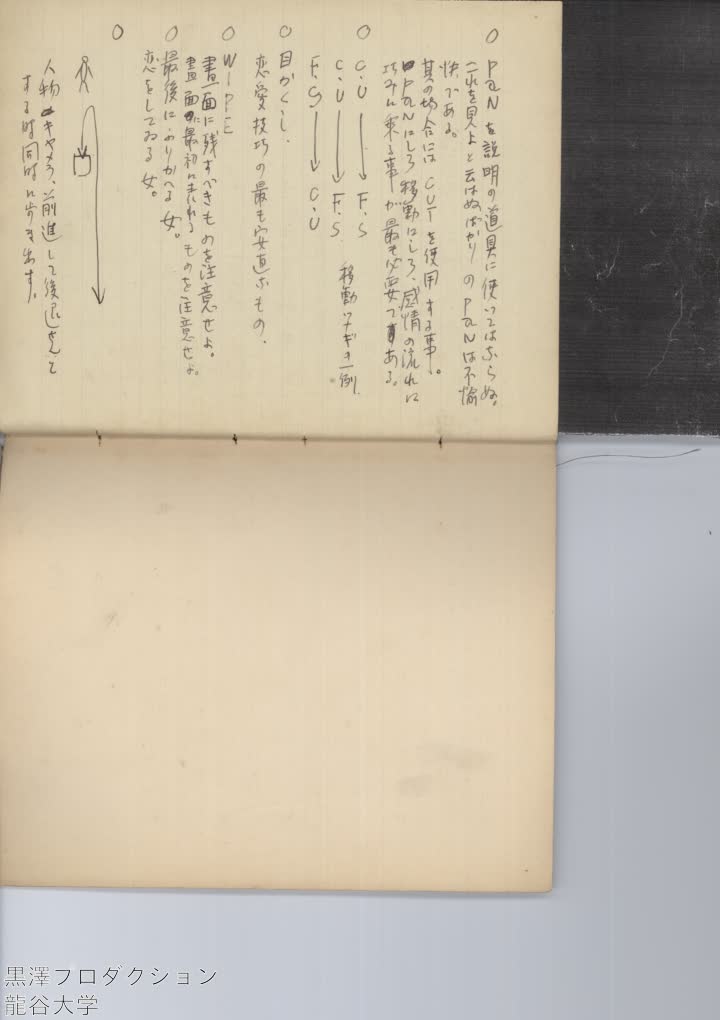 ○ PANを説明の道具に使いてはならぬ。
これを見よと云はぬばかりのPANは不愉
快である。
其の場合にはCUTを使用する事。
PANにしろ移動にしろ、感情の流れに
巧みに乗る事が最も必要である。
○ C.U → F.S
C.U → F.S 移動ツナギの一例
F.S → C.U
○ 目かくし、
恋愛技巧の最も安直なもの、
○ WIPE
畫面に残すべきものを注意せよ。
畫面に最初に表れるものを注意せよ。
○ 最後にふりかへる女。
恋をしてゐる女。
○
人物 キャメラ、前進して後退
する時同時に歩き出す。
黒澤プロダクション
龍谷大学